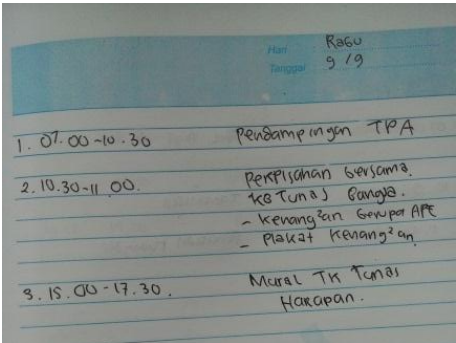 Hari Rabu
Tanggal 9/9
1. 07.00-10.30 Pendampingan TPA
2. 10.30-11.00. Perpisahan bersama
KB Tunas Bangsa.
- Kenang²an berupa APE
- Plakat Kenang²an
3. 15.00-17.30. Mural TK Tunas
Harapan.